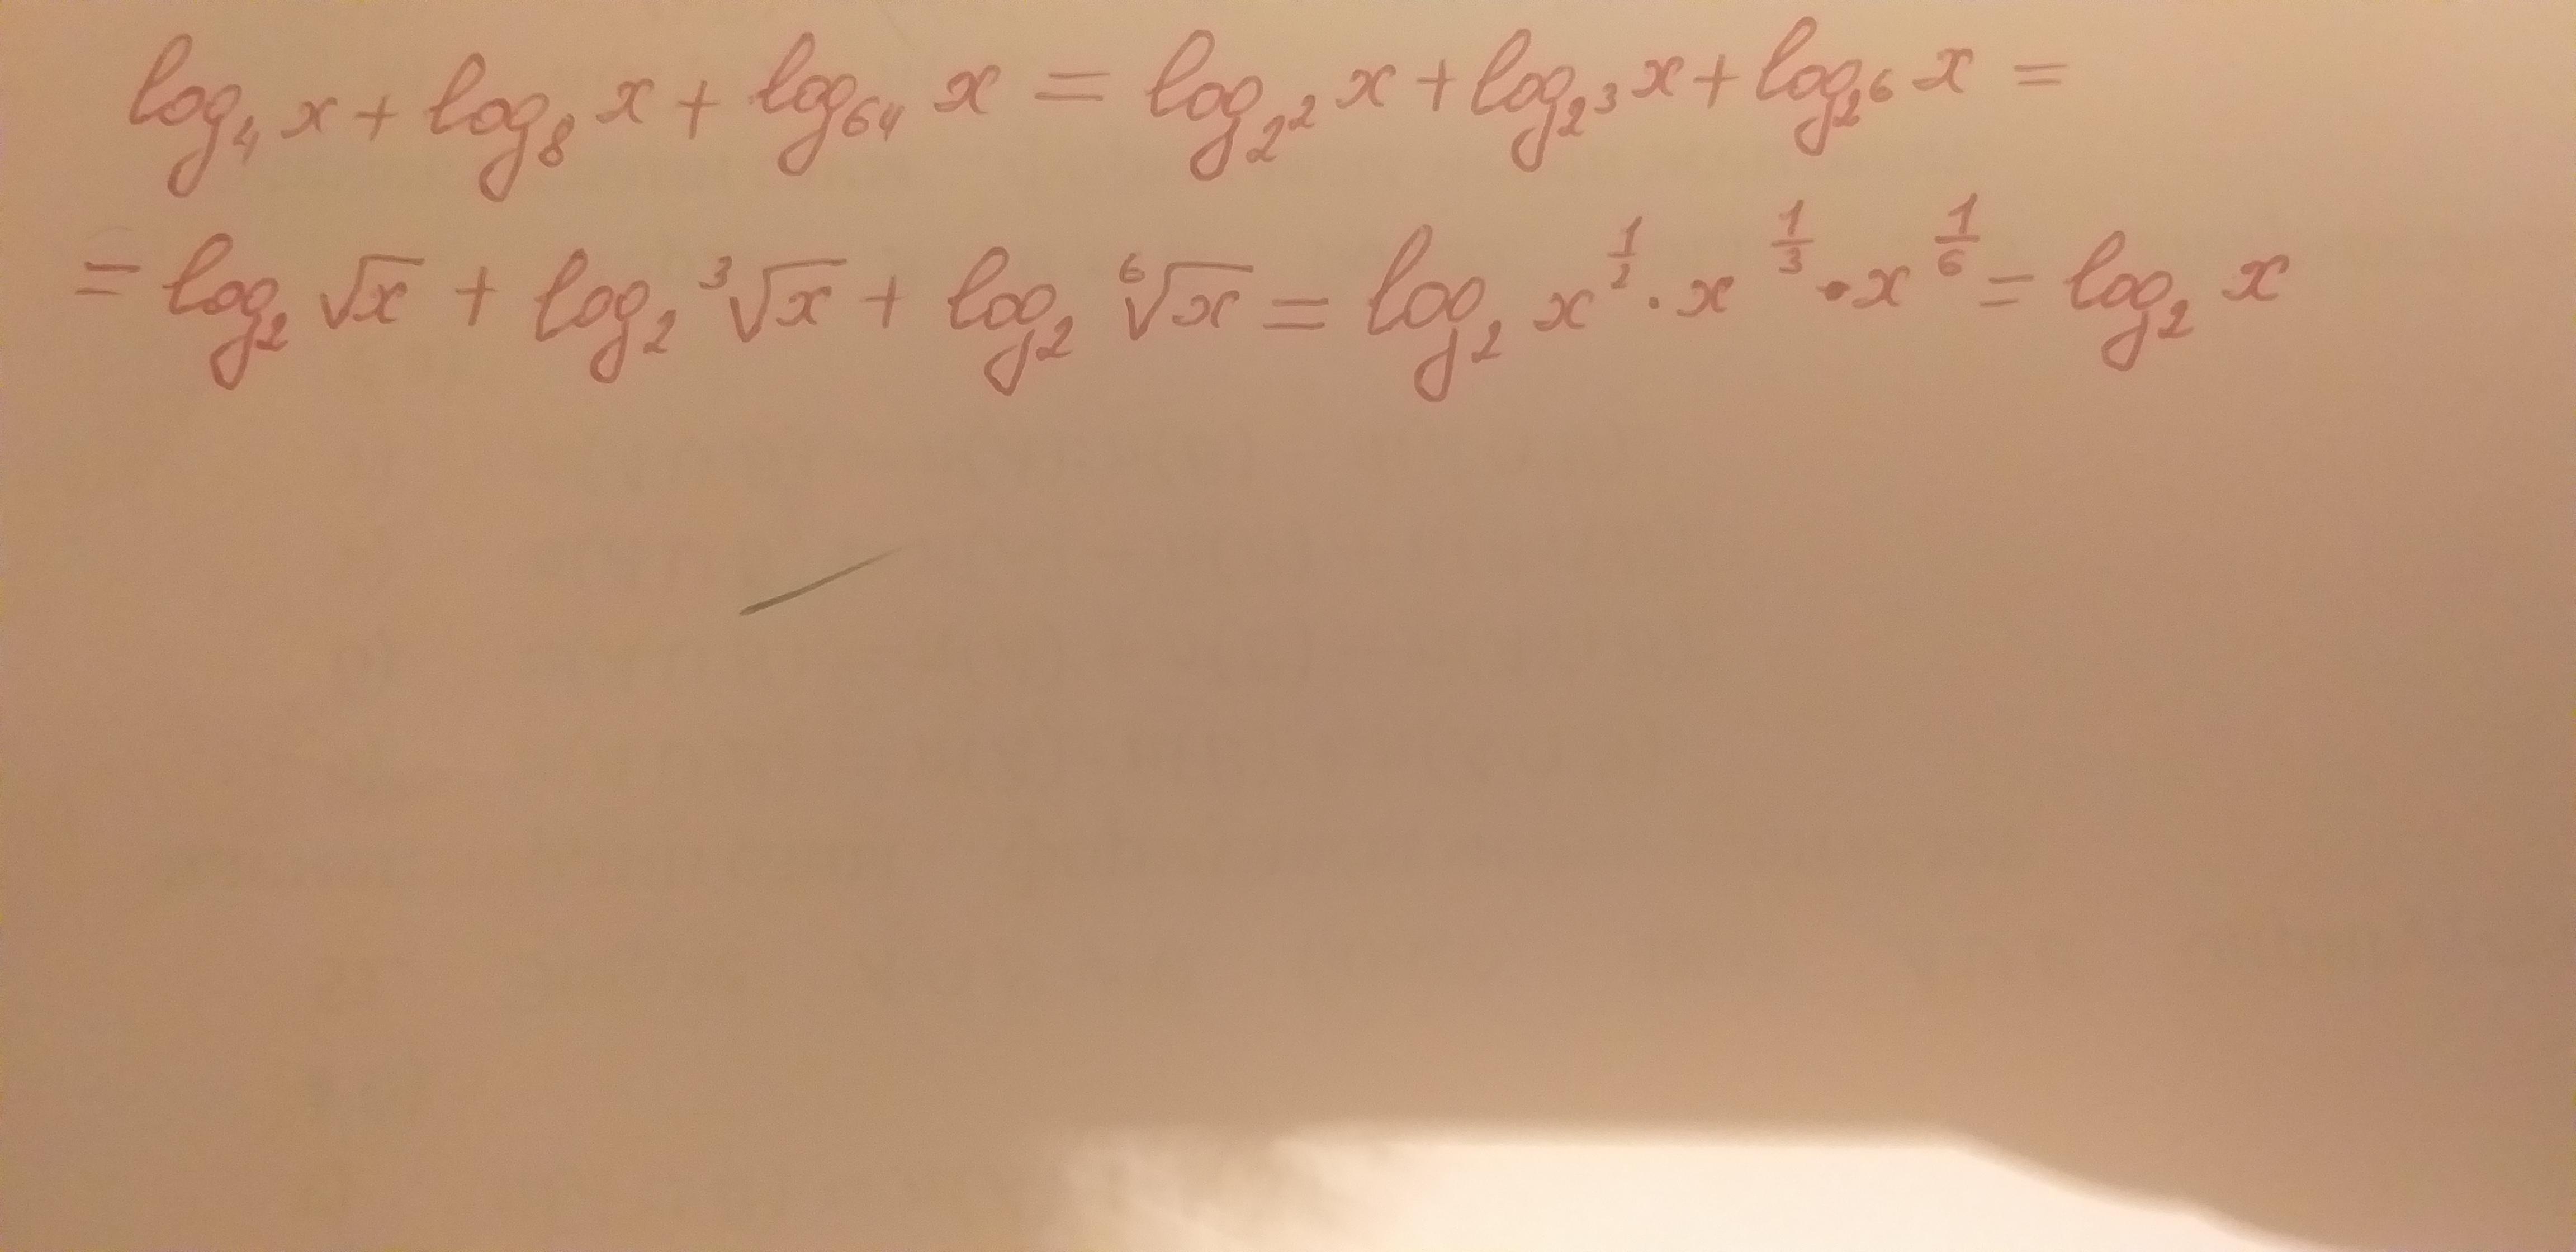 log₄ x + log₈ x + log₆₄ x = log_{2²} x + log_{2³} x + log_{2⁶} x =
= log₂ √x + log₂ ³√x + log₂ ⁶√x = log₂ x^{1/2} · x^{1/3} · x^{1/6} = log₂ x